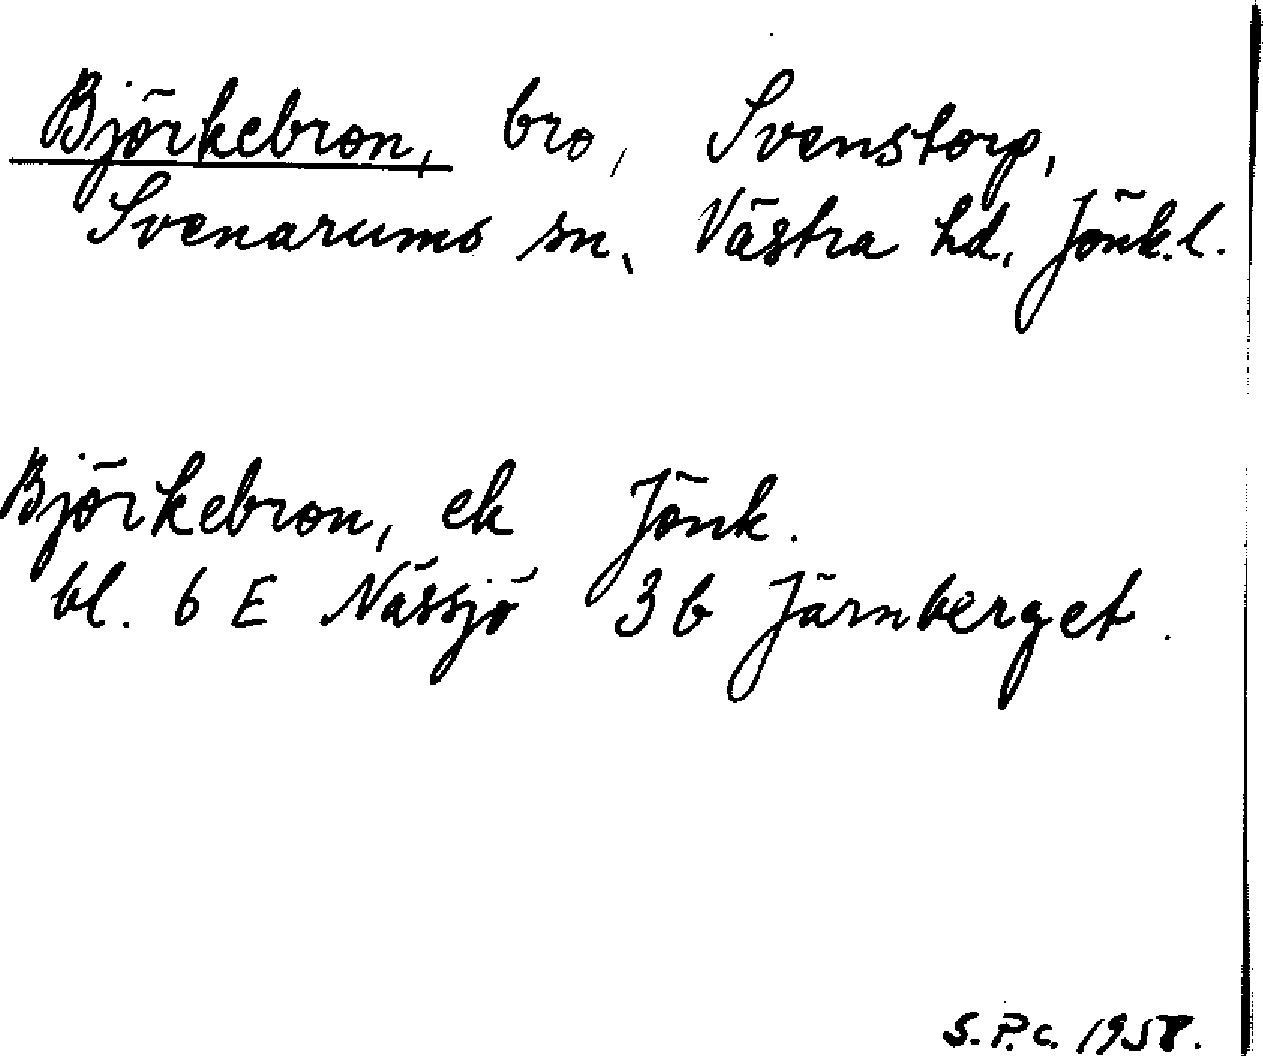 Björkebron, bro, Svenstorp,
Svenarums sn, Västra hd, Jönk.l.
Björkebron, ek Jönk.
bl. 6 E Nässjö 3 b Järnberget.
S.P.C. 1958.